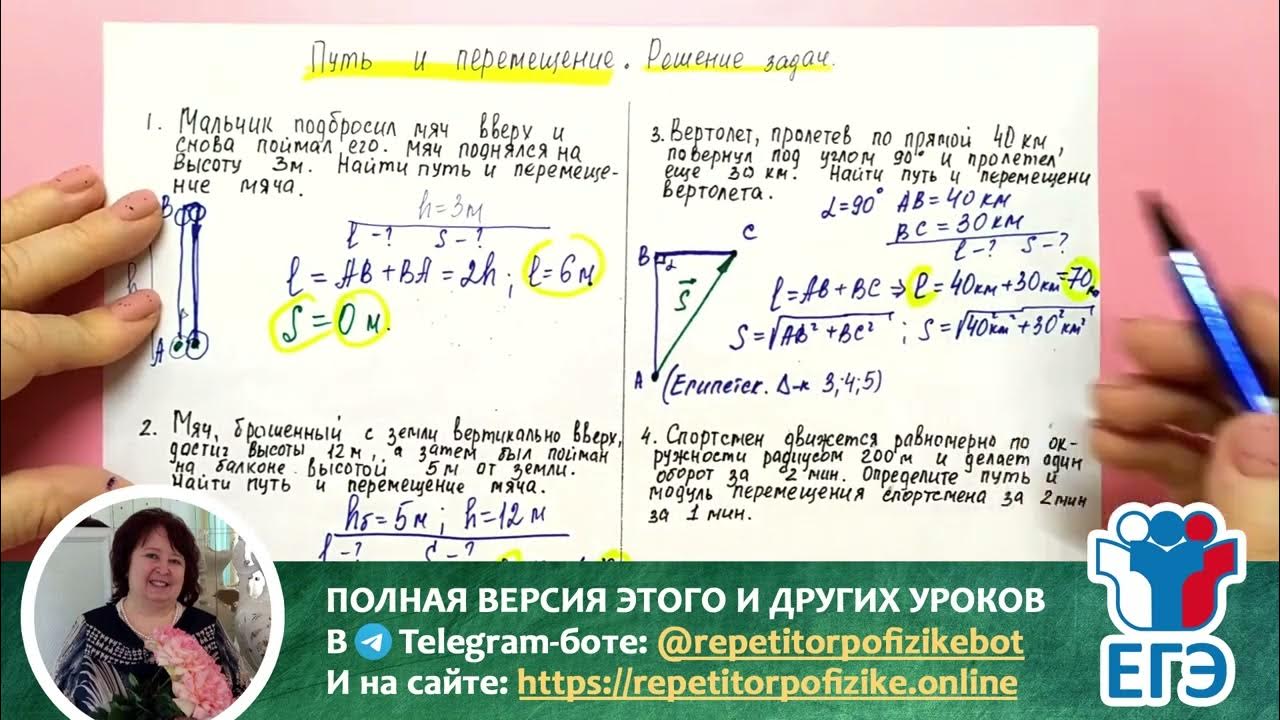 Путь и перемещение. Решение задач.
1. Мальчик подбросил мяч вверх и
снова поймал его. Мяч поднялся на
высоту 3м. Найти путь и перемеще-
ние мяча.
h=3м
l-? S-?
B
h
A
l = AB + BA = 2h; l=6м
S = 0 м.
2. Мяч, брошенный с земли вертикально вверх,
достиг высоты 12м, а затем был пойман
на балконе высотой 5м от земли.
Найти путь и перемещение мяча.
hб=5м; h=12м
l-? S-?
3. Вертолет, пролетев по прямой 40 км,
повернул под углом 90° и пролетел
еще 30 км. Найти путь и перемещени
вертолета.
α=90° AB=40 км
BC=30 км
l-? S-?
B α C
S
A
l=AB+BC ⇒ l=40км+30км=70
S=√AB²+BC² ; S=√40²км²+30²км²
(Египетск. Δ-к 3;4;5)
4. Спортсмен движется равномерно по ок-
ружности радиусом 200м и делает один
оборот за 2 мин. Определите путь и
модуль перемещения спортсмена за 2 мин
за 1 мин.
ПОЛНАЯ ВЕРСИЯ ЭТОГО И ДРУГИХ УРОКОВ
В Telegram-боте: @repetitorpofizikebot
И на сайте: https://repetitorpofizike.online
ЕГЭ